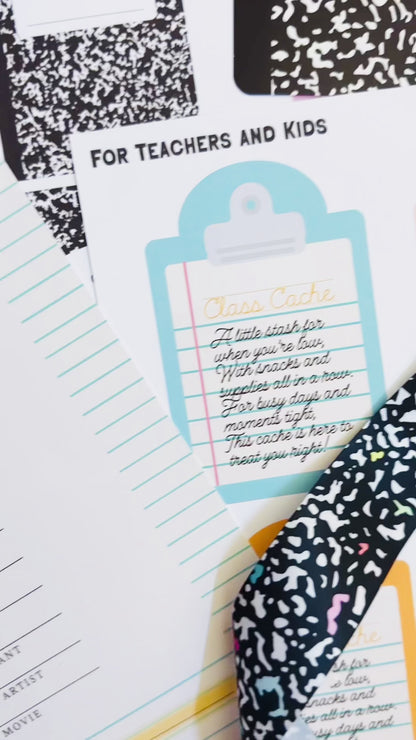 For Teachers and Kids
Class Cache
A little stash for
when you're low,
With snacks and
supplies all in a row.
For busy days and
moments tight,
This cache is here to
treat you right!
ANT
ARTIST
MOVIE
che
sh for
low,
nacks and
es all in a row.